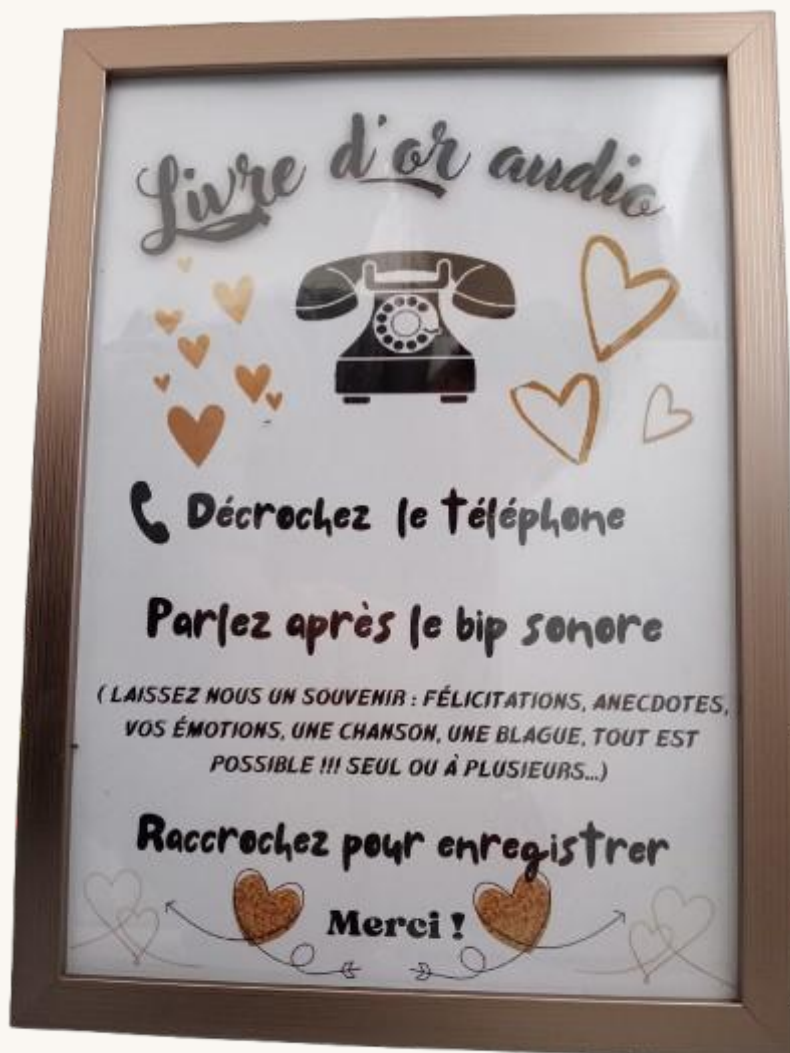 Livre d'or audio
Décrochez le téléphone
Parlez après le bip sonore
( LAISSEZ NOUS UN SOUVENIR : FÉLICITATIONS, ANECDOTES,
VOS ÉMOTIONS, UNE CHANSON, UNE BLAGUE, TOUT EST
POSSIBLE !!! SEUL OU À PLUSIEURS...)
Raccrochez pour enregistrer
Merci !